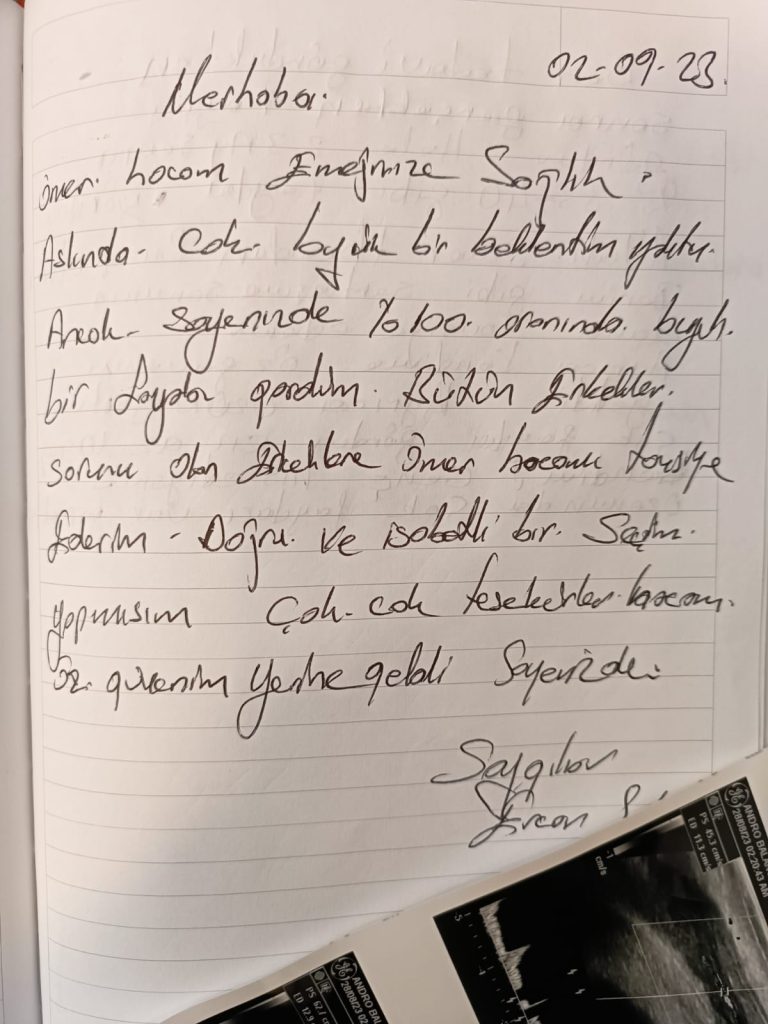 02-09-23.
Merhaba.
Ömer. hocam Emeğinize Sağlık.
Aslında. Çok. büyük bir beklentim yoktu.
Ancak. Sayenizde %100. oranında. büyük.
bir fayda gördüm. Bütün Erkekler.
sorunu olan Erkeklere Ömer hocamı tavsiye
Ederim - Doğru. ve isabetli bir. Seçim.
yapmışım Çok-cok teşekürler. hocam.
Öz. güvenim Yerine geldi Sayenizde.
Saygılar
Ercan
ANDRO BALA
28/08/23 02:20:43 AM
PS 45.3 cm/s
ED 11.3 cm/s
-1
cm/s
ANDRO BALA
28/08/23 02
PS 62.7
ED 12.9